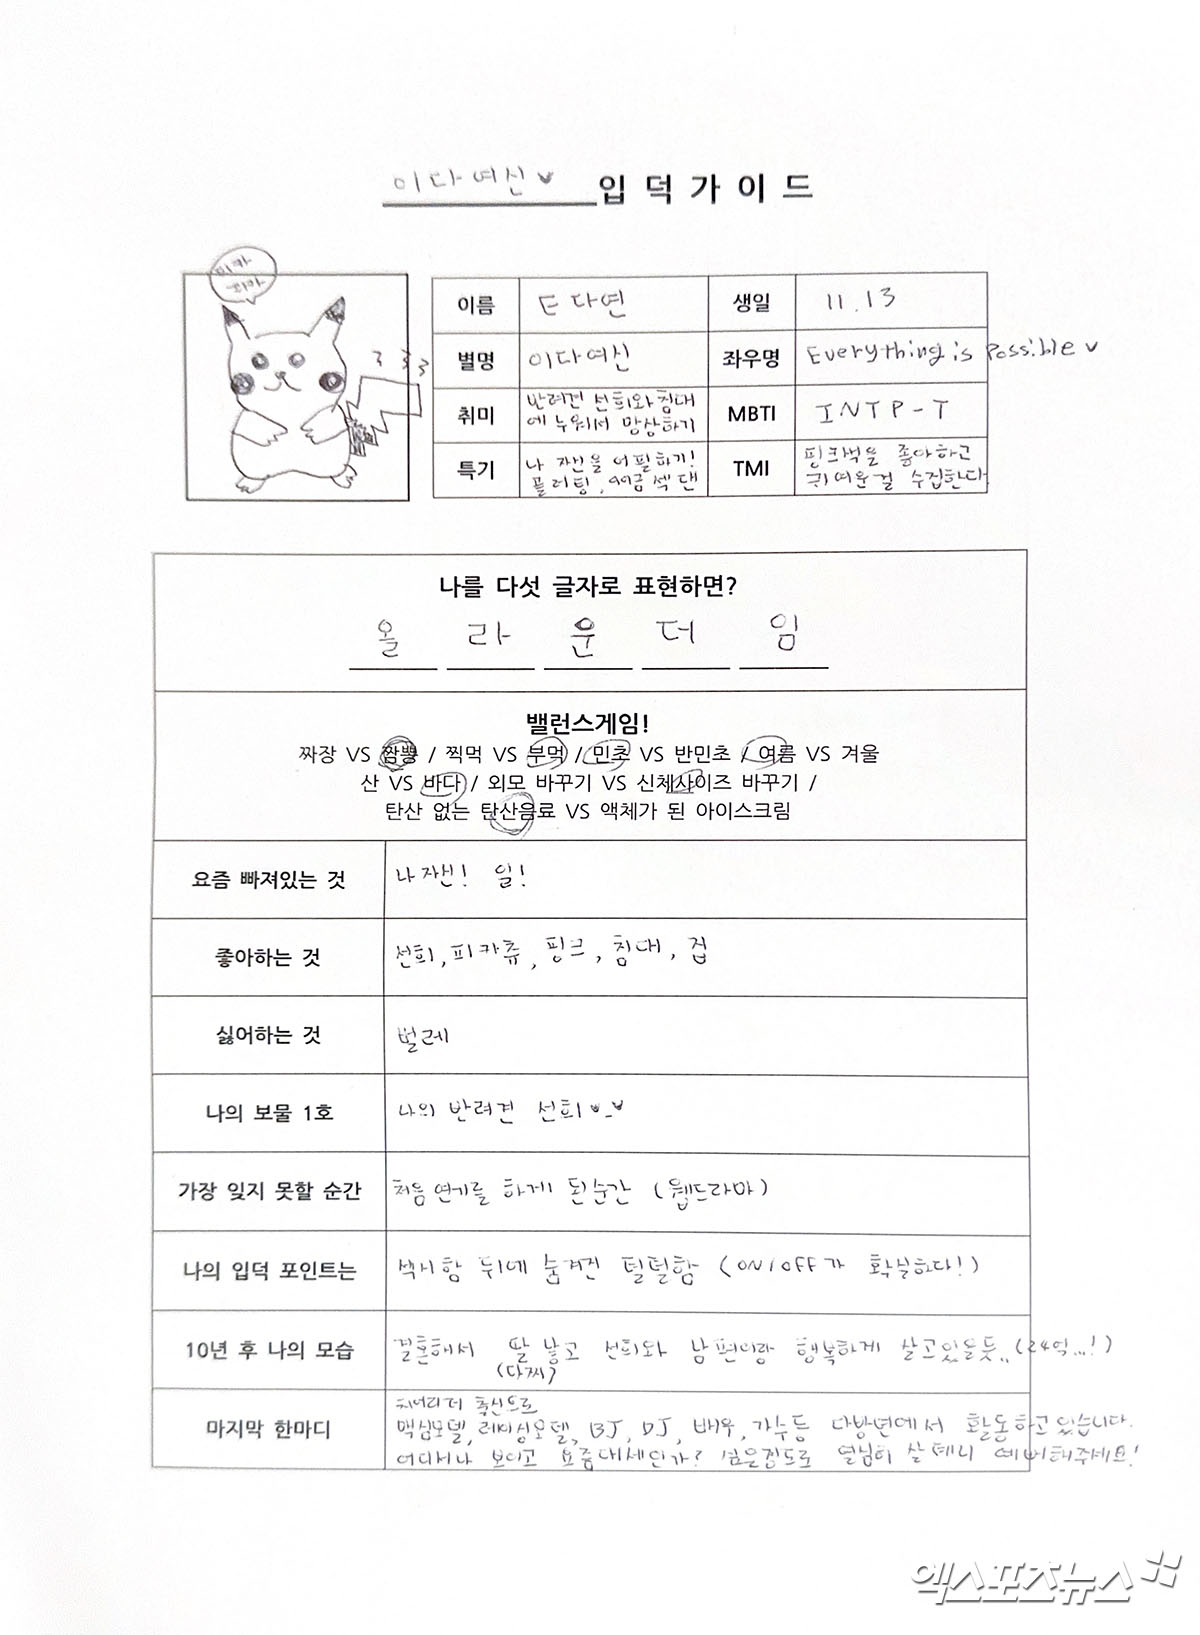 이다여신♥ 입덕가이드
피카
피카
이름 E다연 생일 11.13
별명 이다여신 좌우명 Everything is possible ♥
취미 반려견 선희와 침대
에 누워서 망상하기 MBTI INTP-T
특기 나 자신을 어필하기!
플러팅, 99금 섹댄 TMI 핑크색을 좋아하고
귀여운걸 수집한다
나를 다섯 글자로 표현하면?
올 라 운 더 임
밸런스게임!
짜장 VS 짬뽕 / 찍먹 VS 부먹 / 민초 VS 반민초 / 여름 VS 겨울
산 VS 바다 / 외모 바꾸기 VS 신체사이즈 바꾸기 /
탄산 없는 탄산음료 VS 액체가 된 아이스크림
요즘 빠져있는 것 나 자신! 일!
좋아하는 것 선희, 피카츄, 핑크, 침대, 집
싫어하는 것 벌레
나의 보물 1호 나의 반려견 선희♥_♥
가장 잊지 못할 순간 처음 연기를 하게 된 순간 (웹드라마)
나의 입덕 포인트는 섹시함 뒤에 숨겨진 털털함 (ON/OFF가 확실하다!)
10년 후 나의 모습 결혼해서 딸 낳고 선희와 남편이랑 행복하게 살고있을듯.. (24억...!)
마지막 한마디 치어리더 출신으로
맥심모델, 레이싱모델, BJ, DJ, 배우, 가수등 다방면에서 활동하고있습니다.
어디서나 보이고 요즘대세인가? 싶은정도로 열심히 살테니 예뻐해주세요!
엑스포츠뉴스